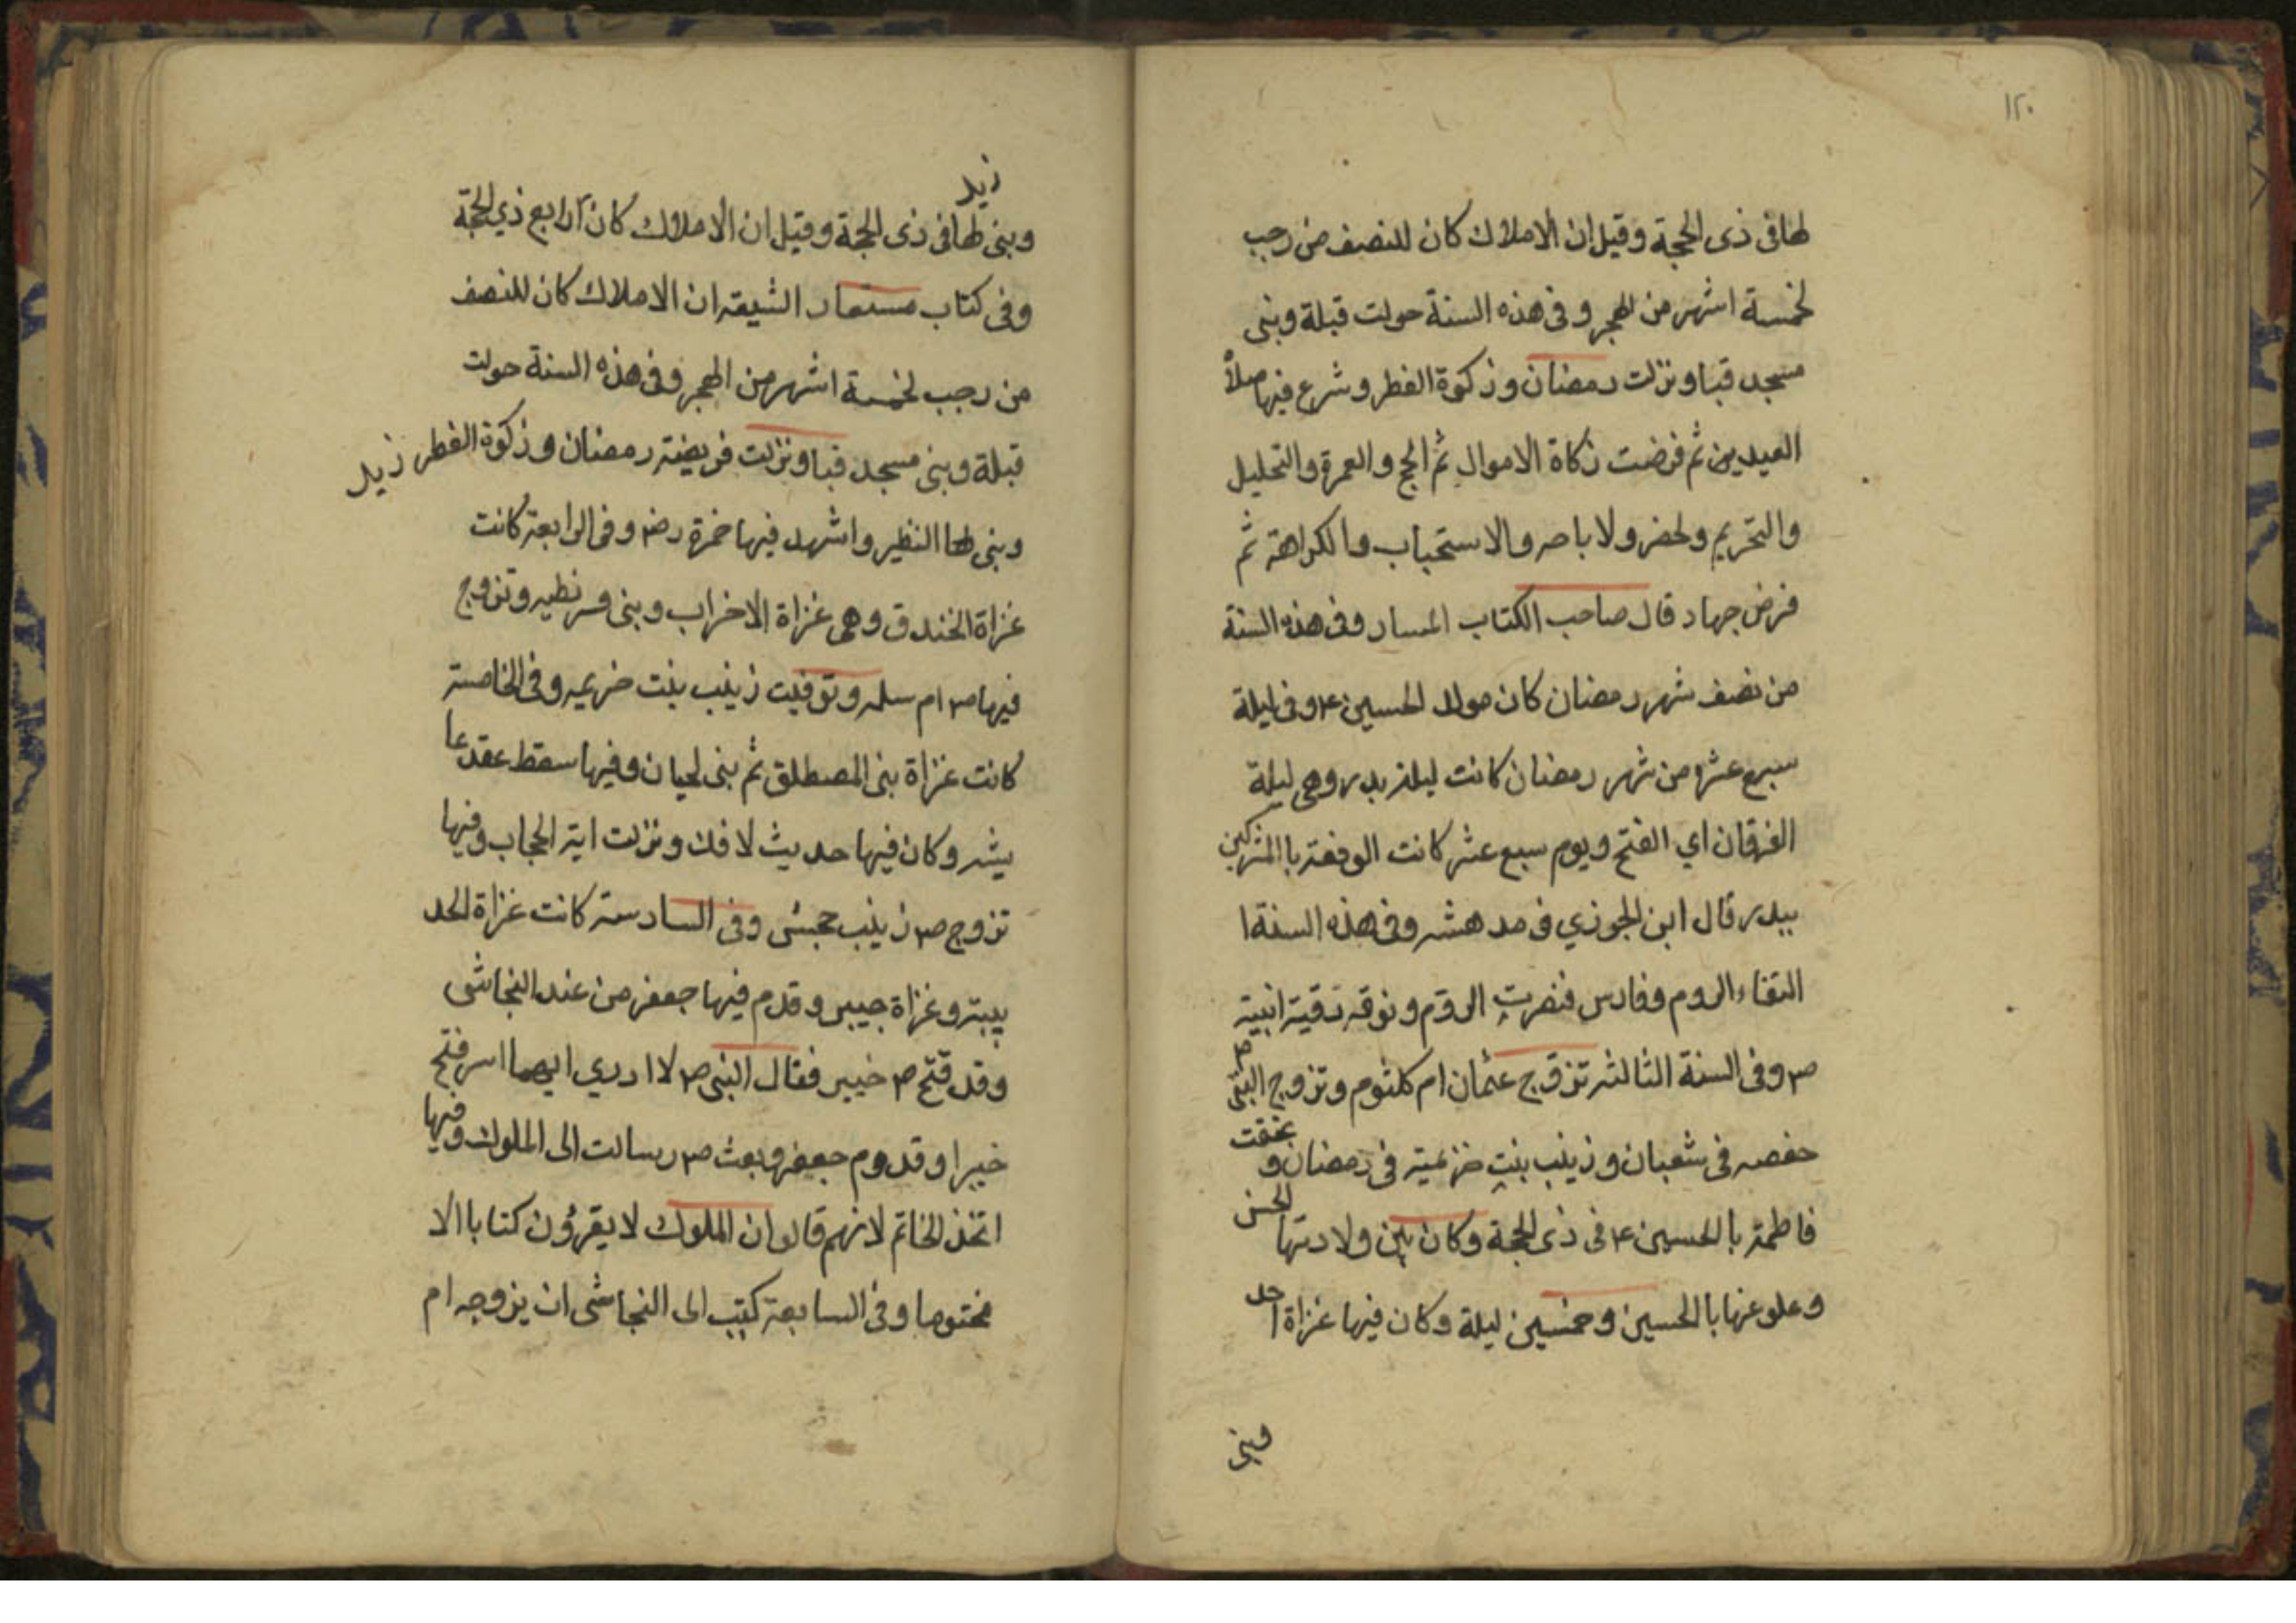 ١٢٠
لها فى ذى الحجة وقيل ان الاملاك كان للنصف من رجب
لخمسة اشهر من الهجر وفى هذه السنة حولت قبلة وبنى
مسجد قبا ونزلت رمضان وزكوة الفطر وشرع فيها صلاة
العيدين ثم فرضت زكاة الاموال ثم الحج والعمرة والتحليل
والتحريم ولحضر ولاباصر والاستحباب والكراهة ثم
فرض جهاد قال صاحب الكتاب المسار وفى هذه السنة
من نصف شهر رمضان كان مولد الحسين ع وفى ليلة
سبع عشر من شهر رمضان كانت ليلة بدر وهى ليلة
الفرقان اي الفتح ويوم سبع عشر كانت الوقعة باالمشركين
ببدر قال ابن الجوزي فى مدهشه وفى هذه السنة ا
التقاء الروم وفارس فنصرت الروم و رقية ابنية
ص وفى السنة الثالثة تزوج عثمان ام كلثوم وتزوج النبى ص
حفصه فى شعبان وزينب بنت خزيمية فى رمضان و
فاطمة باالحسين ع فى ذى الحجة وكان بين ولادتها الحسن
وعلوعنها باالحسين وخمسين ليلة وكان فيها غزاة احد
وبنى
زيد
وبنى لها فى ذى الحجة وقيل ان الاملاك كان الرابع ذي الحجة
وفى كتاب مستمار الشيعة ان الاملاك كان للنصف
من رجب لخمسة اشهر من الهجر وفى هذه السنة حولت
قبلة وبنى مسجد قبا ونزلت فريضة رمضان وزكوة الفطر زيد
وبنى لها النظير واشهد فيها حمزة رض وفى الرابعة كانت
غزاة الخندق وهى غزاة الاخراب وبنى وتزوج
فيها ص ام سلمه وتوفيت زينب بنت خزيمه وفى الخامسة
كانت غزاة بنى المصطلق ثم بنى لحيان وفيها سقط عقد عا
يشه وكان فيها حديث لافك ونزلت اية الحجاب وفيها
تزوج ص زينب حبشى وفى السادسة كانت غزاة الحد
يبية وغزاة جيبر وقدم فيها جعفر من عند النجاشى
وقد فتح ص خيبر فقال النبى ص لا ادري ايهما اسر فتح
خيبر او قدوم جعفر وبعث ص رسالت الى الملوك وفيها
اتخذ الخاتم لانهم قالو ان الملوك لا يقرؤن كتابا الا
مختوما وفى السابعة كتب الى النجاشى ان يزوجه ام